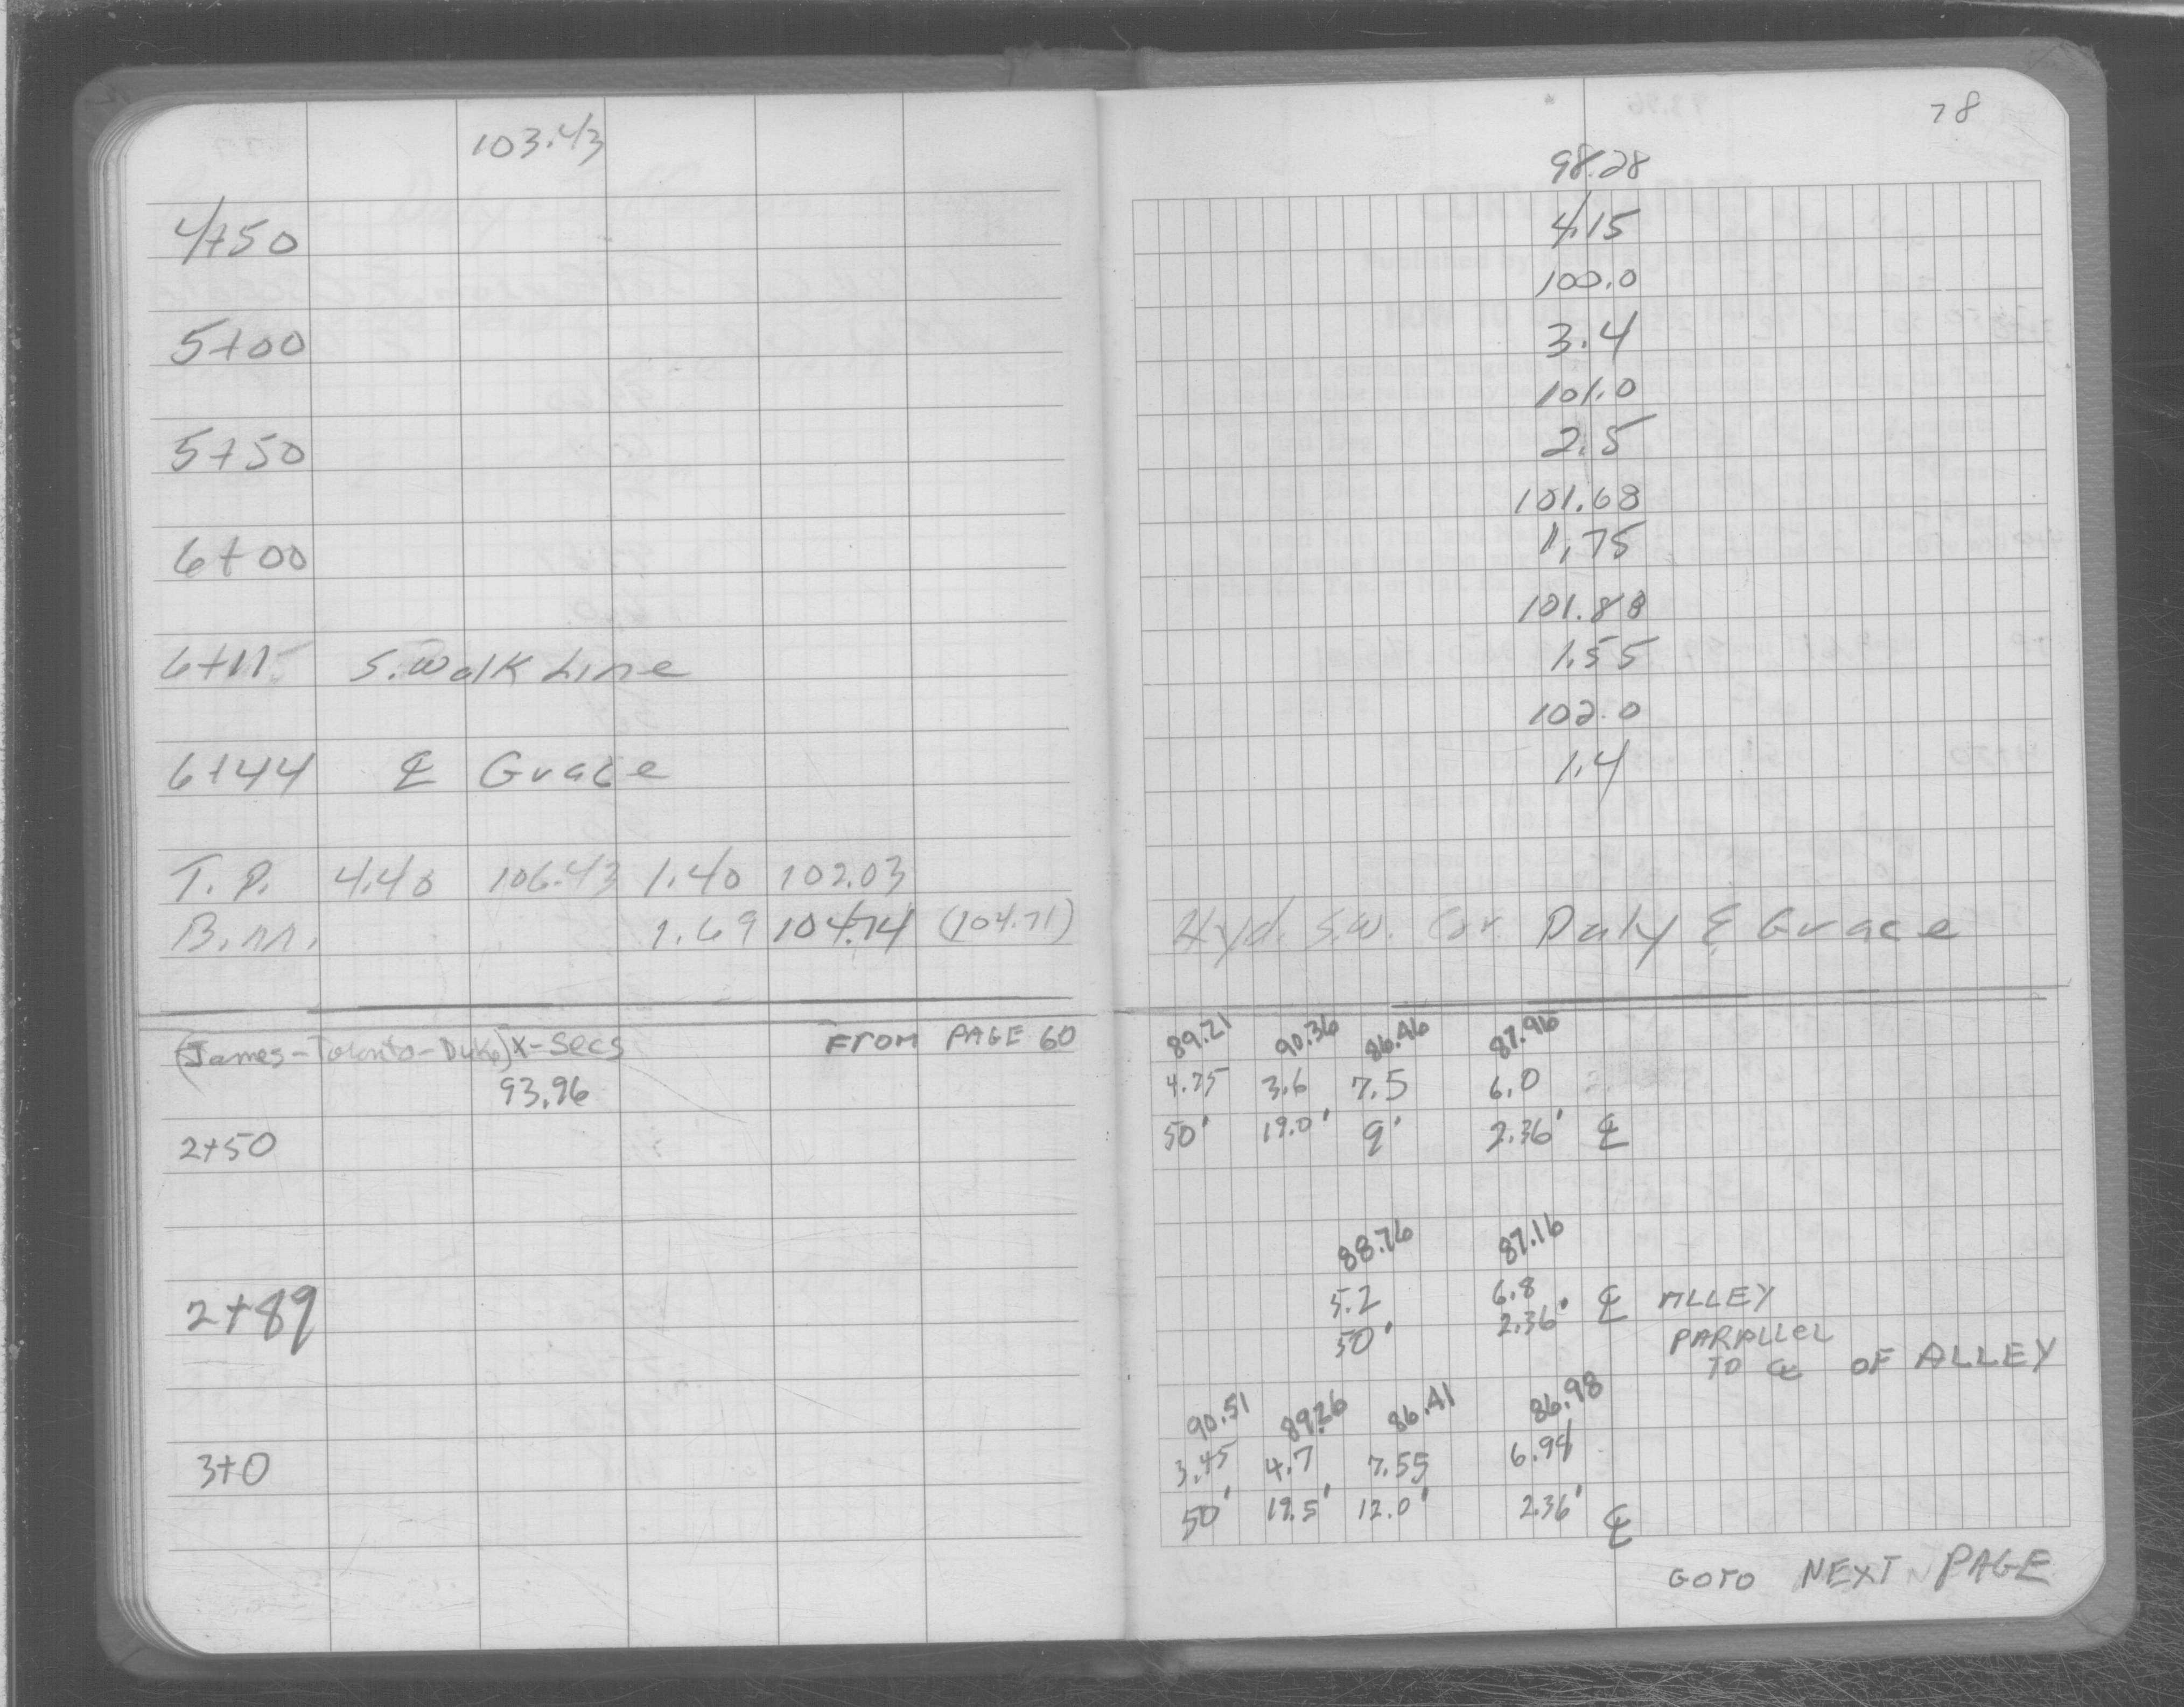 103.43
4+50
5+00
5+50
6+00
6+11 S. Walk Line
6+44 ℄ Grace
T.P. 4.40 106.43 1.40 102.03
B.M. 1.69 104.74 (104.71)
(James-Toronto-Duke) X-Secs FROM PAGE 60
93.96
2+50
2+89
3+0
78
98.28
4.15
100.0
3.4
101.0
2.5
101.68
1.75
101.88
1.55
102.0
1.4
Hyd. S.W. Cor. Daly & Grace
89.21 90.36 86.46 87.96
4.75 3.6 7.5 6.0
50' 19.0' 9' 2.36' ℄
88.76 87.16
5.2 6.8 ℄ ALLEY
50' 2.36' PARALLEL
TO ℄ OF ALLEY
90.51 89.26 86.41 86.98
3.45 4.7 7.55 6.98
50' 19.5' 12.0' 2.36' ℄
GOTO NEXT PAGE